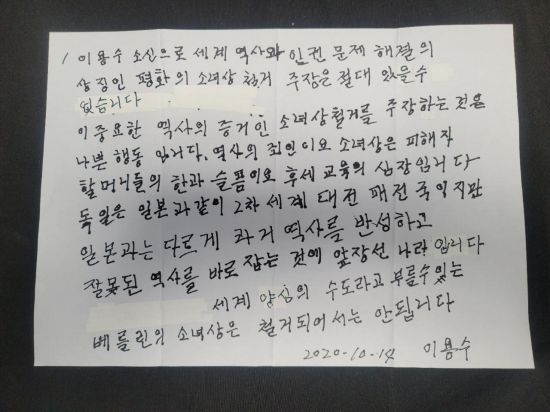 / 이용수 소신으로 세계 역사와 인권 문제 해결의
상징인 평화의 소녀상 철거 주장은 절대 있을 수
없습니다
이 중요한 역사의 증거인 소녀상철거를 주장하는 것은
나쁜 행동 입니다. 역사의 죄인이요 소녀상은 피해자
할머니들의 한과 슬픔이요 후세 교육의 심장입니다
독일은 일본과 같이 2차 세계 대전 패전 국이지만
일본과는 다르게 과거 역사를 반성하고
잘못된 역사를 바로 잡는 것에 앞장선 나라 입니다
세계 양심의 수도라고 부를수 있는
베를린의 소녀상은 철거되어서는 안됩니다
2020-10-14 이용수